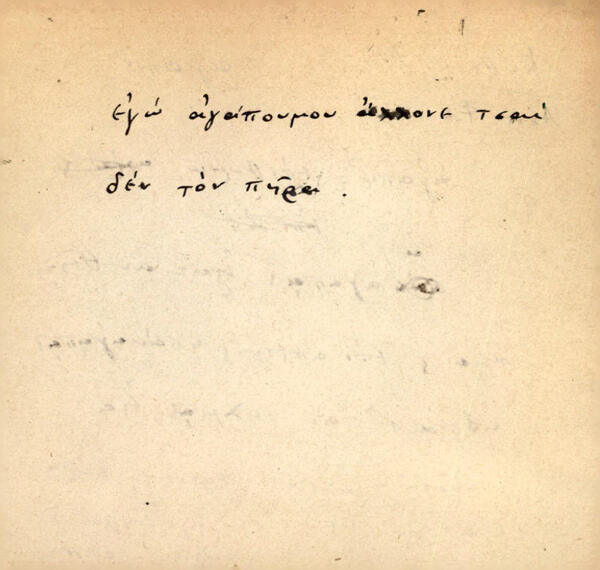 ἐγώ ἀγάπουμου τσαί
δέν τὸν πῆρα .